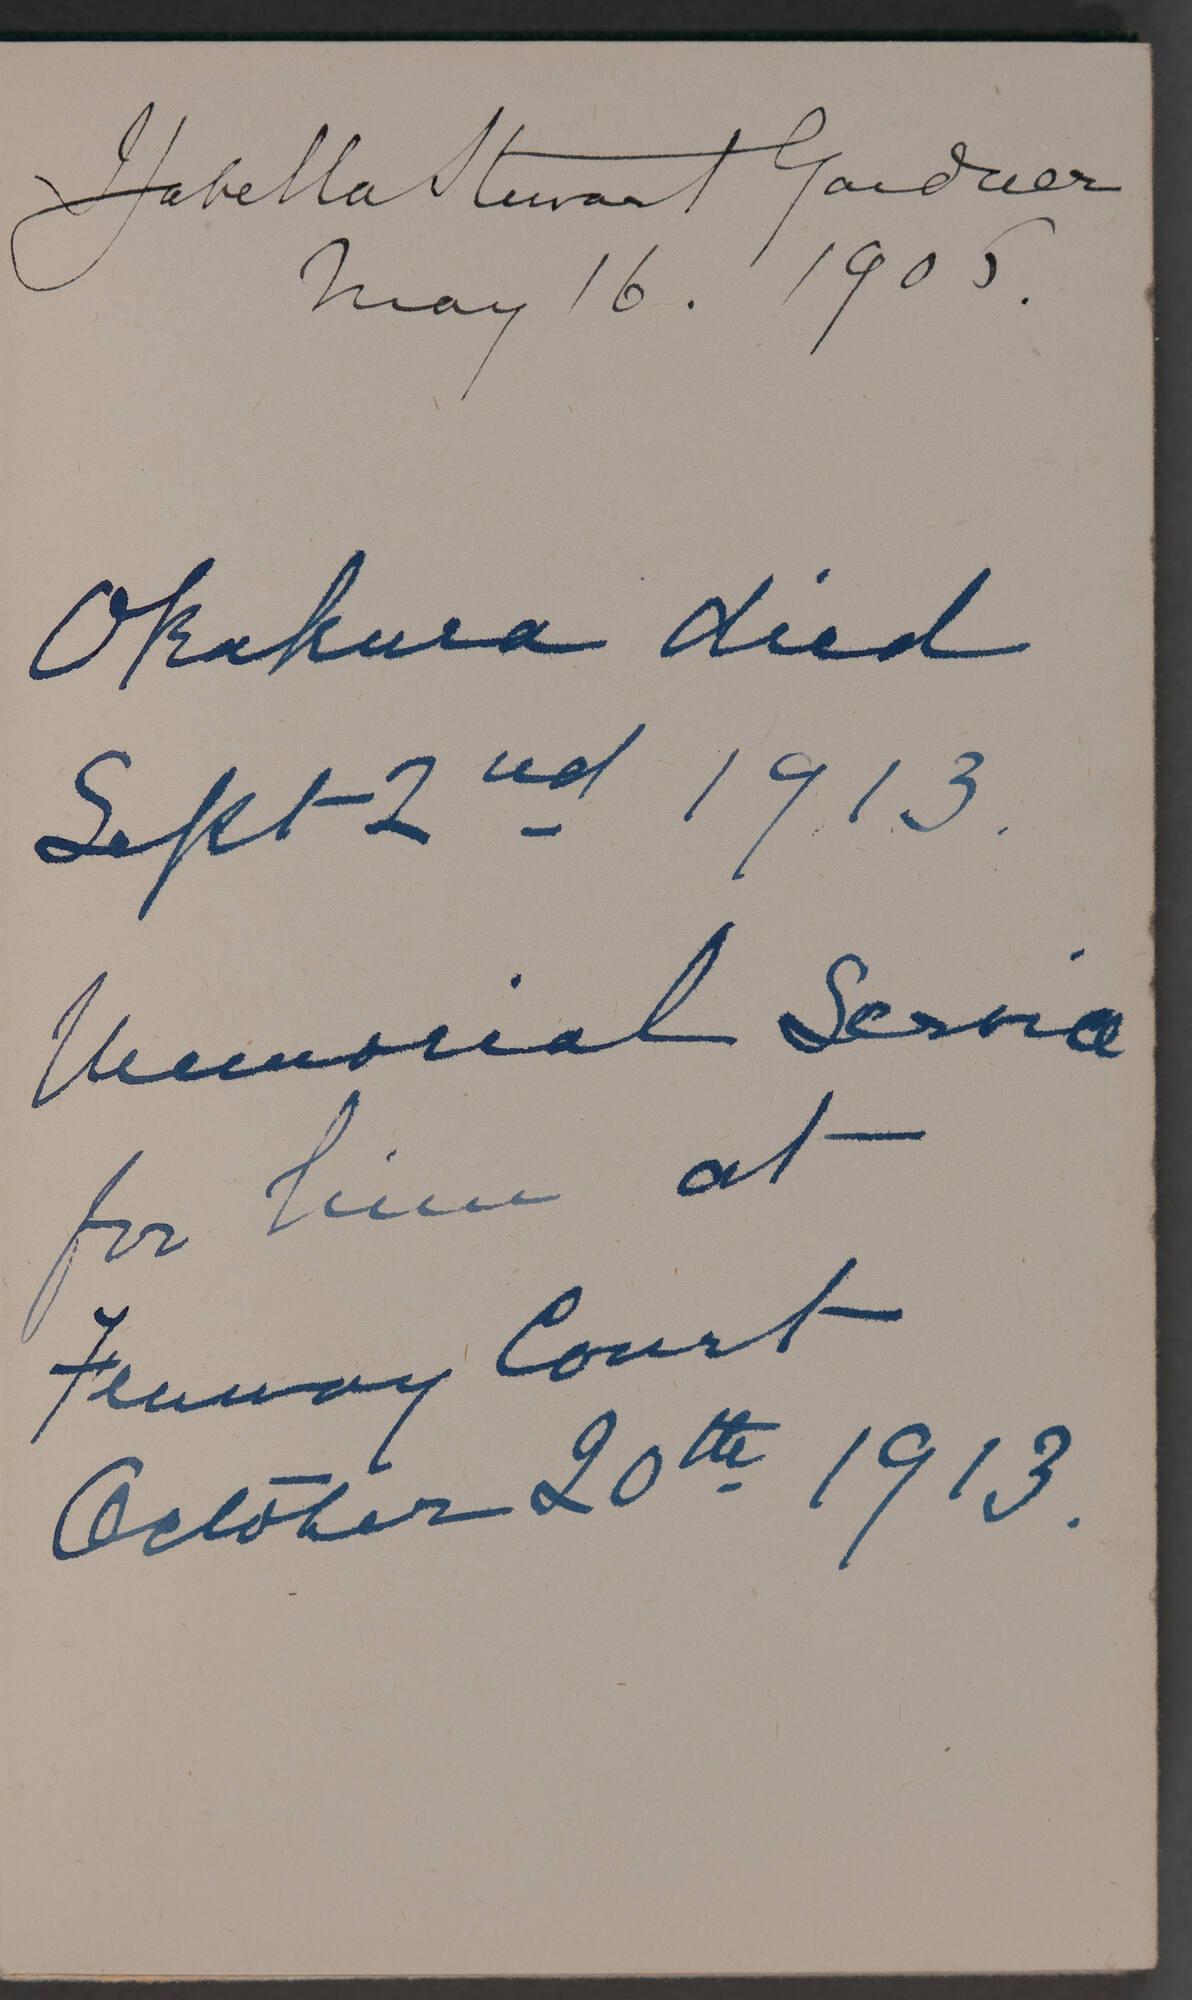 Isabella Stewart Gardner
May 16. 1905.
Okakura died
Sept 2nd 1913.
Memorial Service
for him at
Fenway Court
October 20th 1913.